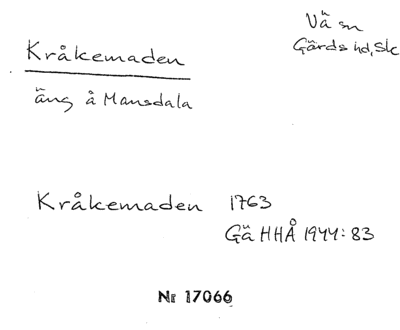 Vä sn
Gärds hd, Sk
Kråkemaden
äng å Mansdala
Kråkemaden 1763
Gä HHÅ 1944:83
Nr 17066